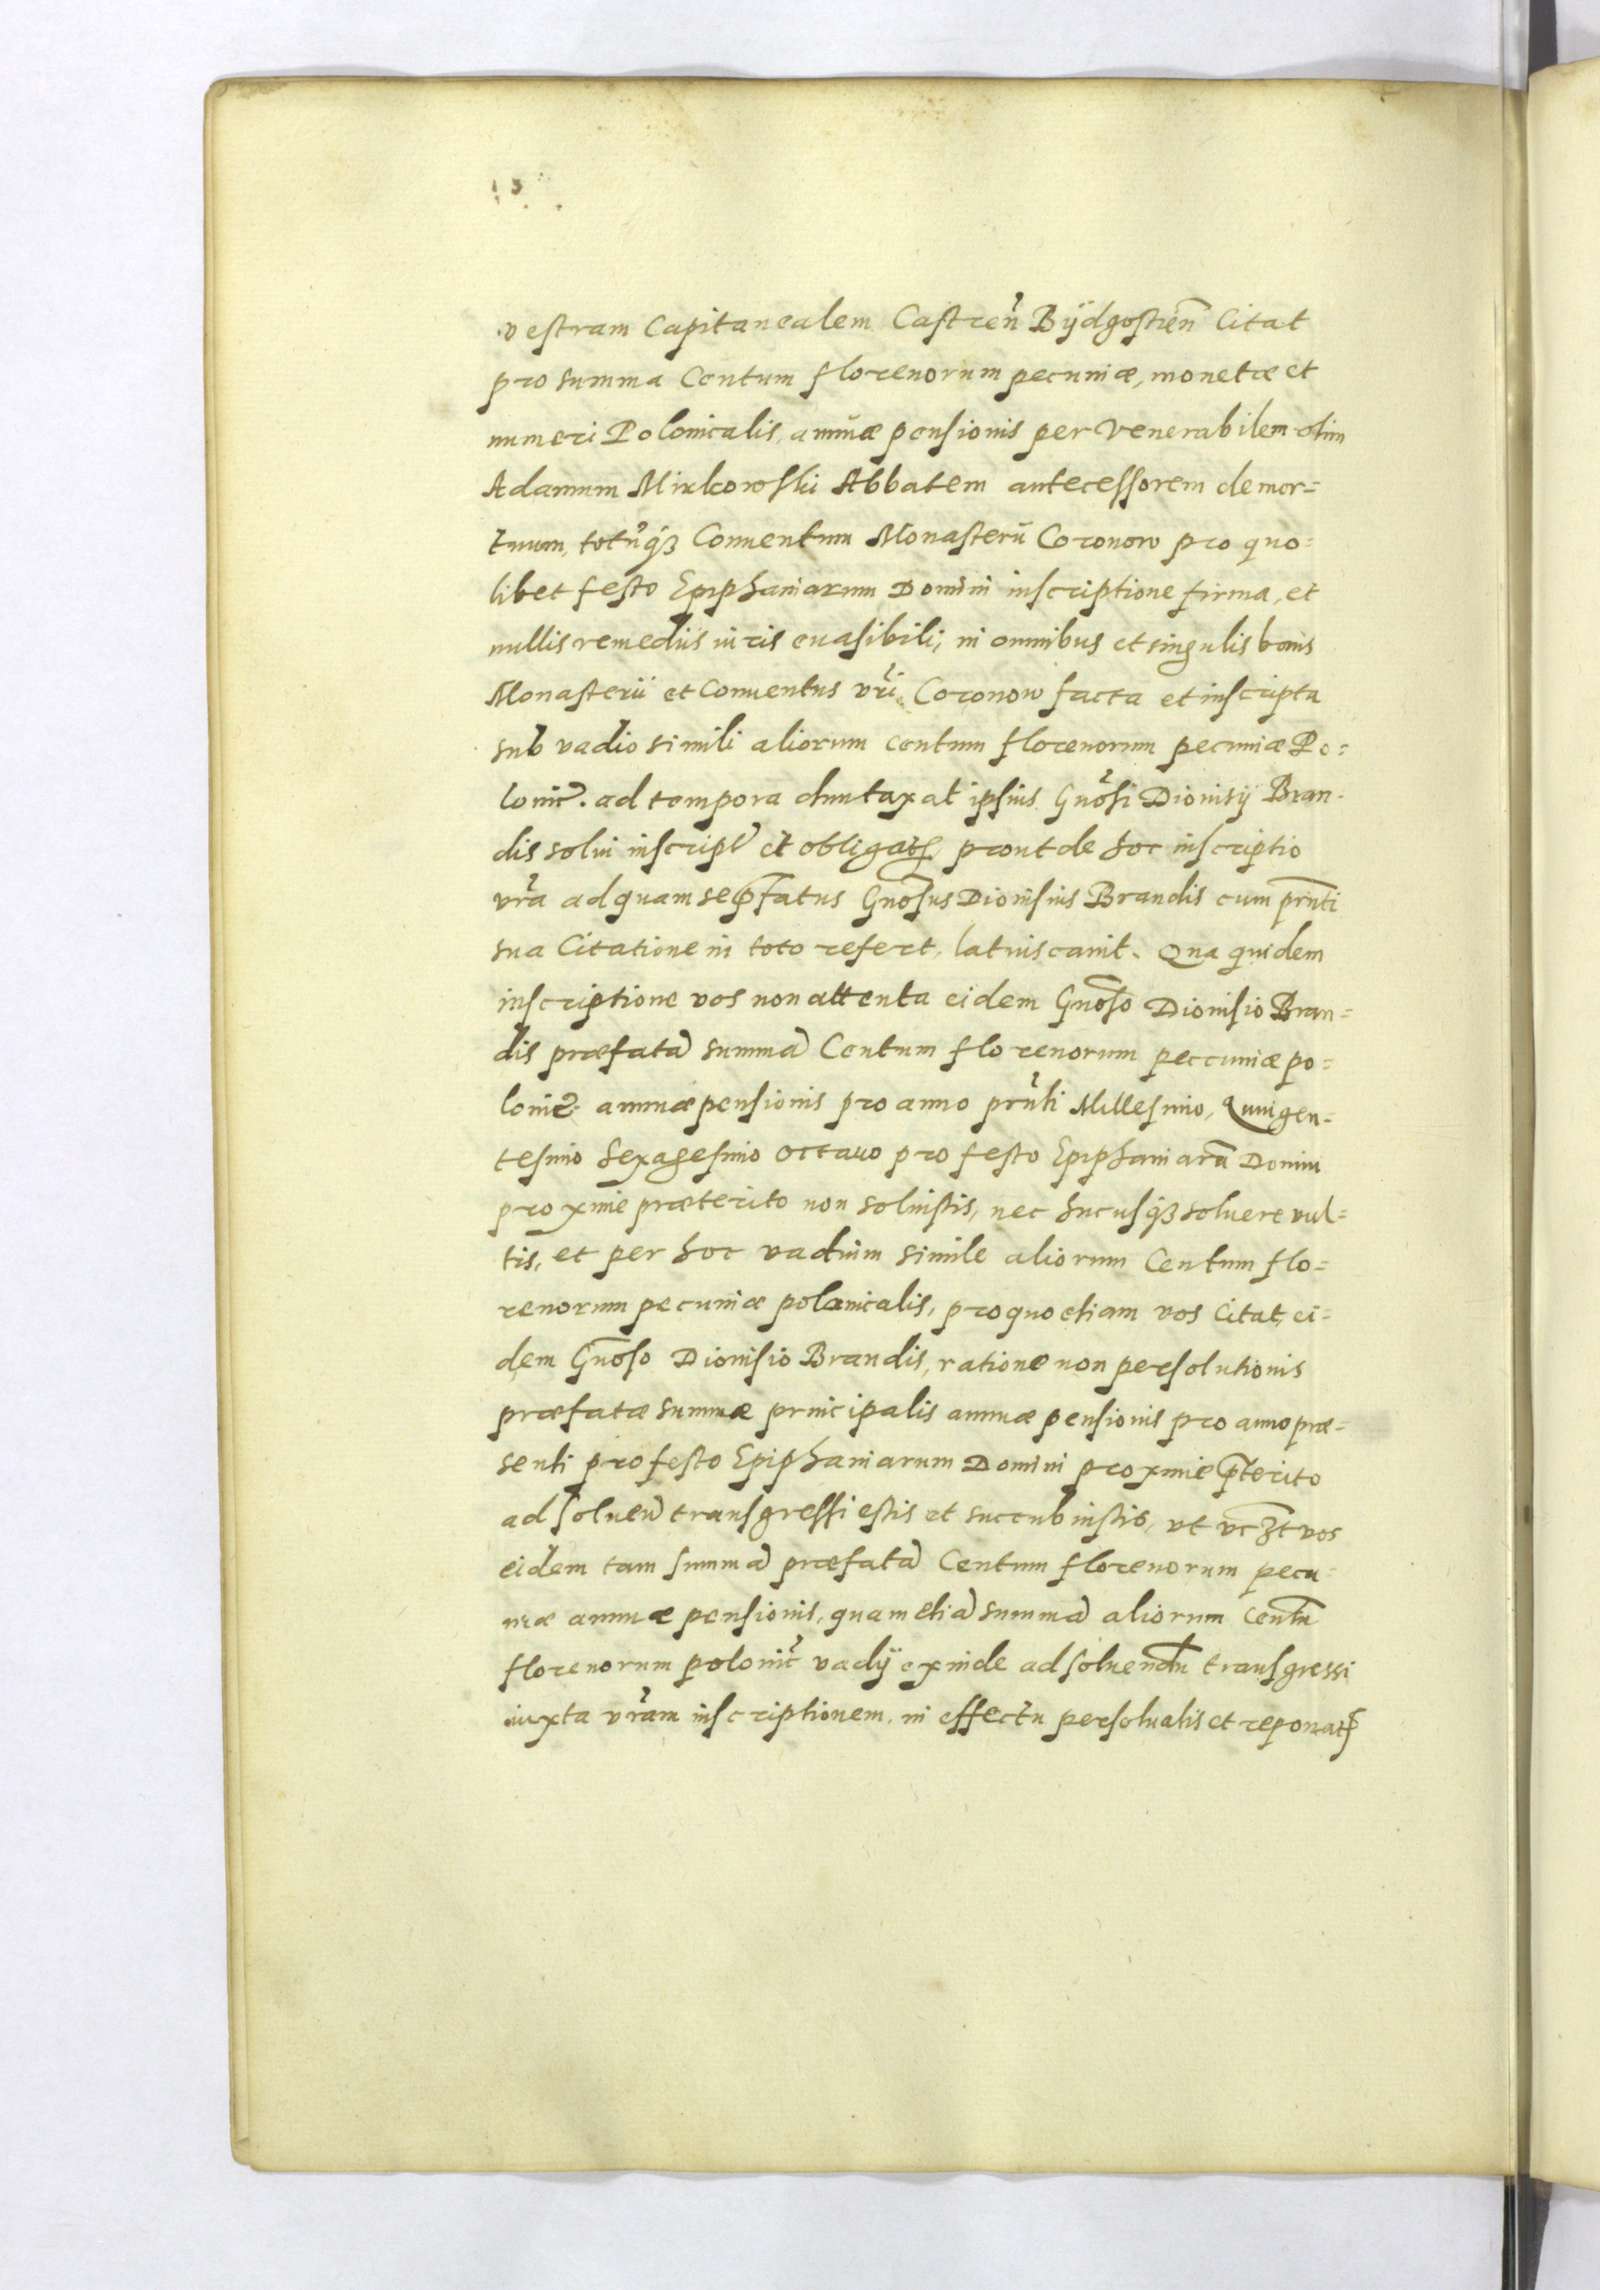 vestram Capitanealem Castreñ Bÿdgostieñ Citat
pro summa Centum florenorum pecuniæ, monetæ et
numeri Polonicalis, annuæ pensionis per Venerabilem olim
Adamum Mirkowski Abbatem antecessorem demor=
tuum, totũqȝ Conuentum Monasterii Coronow pro quo=
libet festo Epiphaniarum Domini inscriptione firma, et
nullis remediis iuris euasibili, in omnibus et singulis bonis
Monasterii et Conuentus vri̅ Coronow facta et inscripta
sub vadio simili aliorum centum florenorum pecuniæ Po=
lonic̅. ad tempora duntaxat ipsius Gno̅si Dionisÿ Bran=
dis solui inscript̅ et obligat̅, prout de hoc inscriptio
vr̅a ad quam se p̅fatus Gno̅sus Dionisius Brandis cum pr̅nti
sua Citatione in toto refert, latius canit. Qua quidem
inscriptione vos non attenta eidem Gno̅so Dionisio Bran=
dis præfatã summã Centum florenorum peccuniæ po=
lonic̅. annuæ pensionis pro anno pr̅nti Millesimo, Quingen=
tesimo Sexagesimo octauo pro festo Epiphaniarũ Domini
proxime præterito non soluistis, nec hucusqȝ soluere vul=
tis, et per hoc vadium simile aliorum Centum flo=
renorum pecuniæ polonicalis, pro quo etiam vos Citat, ei=
dem Gno̅so Dionisio Brandis, ratione non persolutionis
præfatæ summæ principalis annuæ pensionis pro anno præ=
senti pro festo Epiphaniarum Domini proxime p̅terito
ad soluen̅ transgressi estis et succubuistis, vt vcȝt vos
eidem tam summã præfatã Centum florenorum pecu=
niæ annuæ pensionis, quam etiã summã aliorum Centũ
florenorum polonic̅ vadÿ exinde ad soluendũ transgressi
iuxta vr̅am inscriptionem, in effectu persoluatis et reponat̅